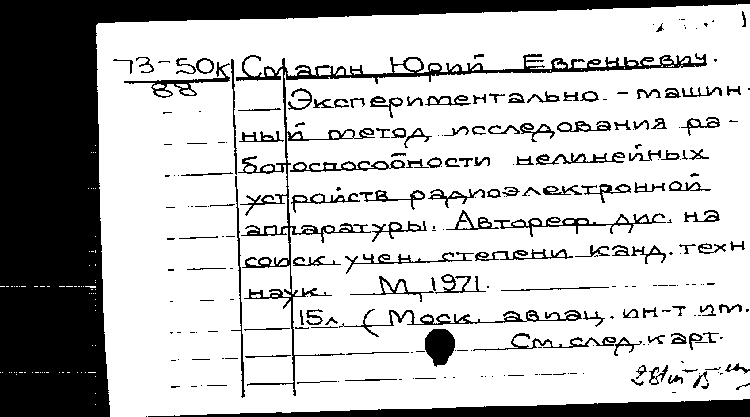 73-50к Смагин, Юрий Евгеньевич.
88
Экспериментально-машин-
ный метод исследования ра-
ботоспособности нелинейных
устройств радиоэлектронной
аппаратуры. Автореф. дис. на
соиск. учен. степени канд. техн
наук. М, 1971.
15л. (Моск. авиац. ин-т им.
См. след. карт.